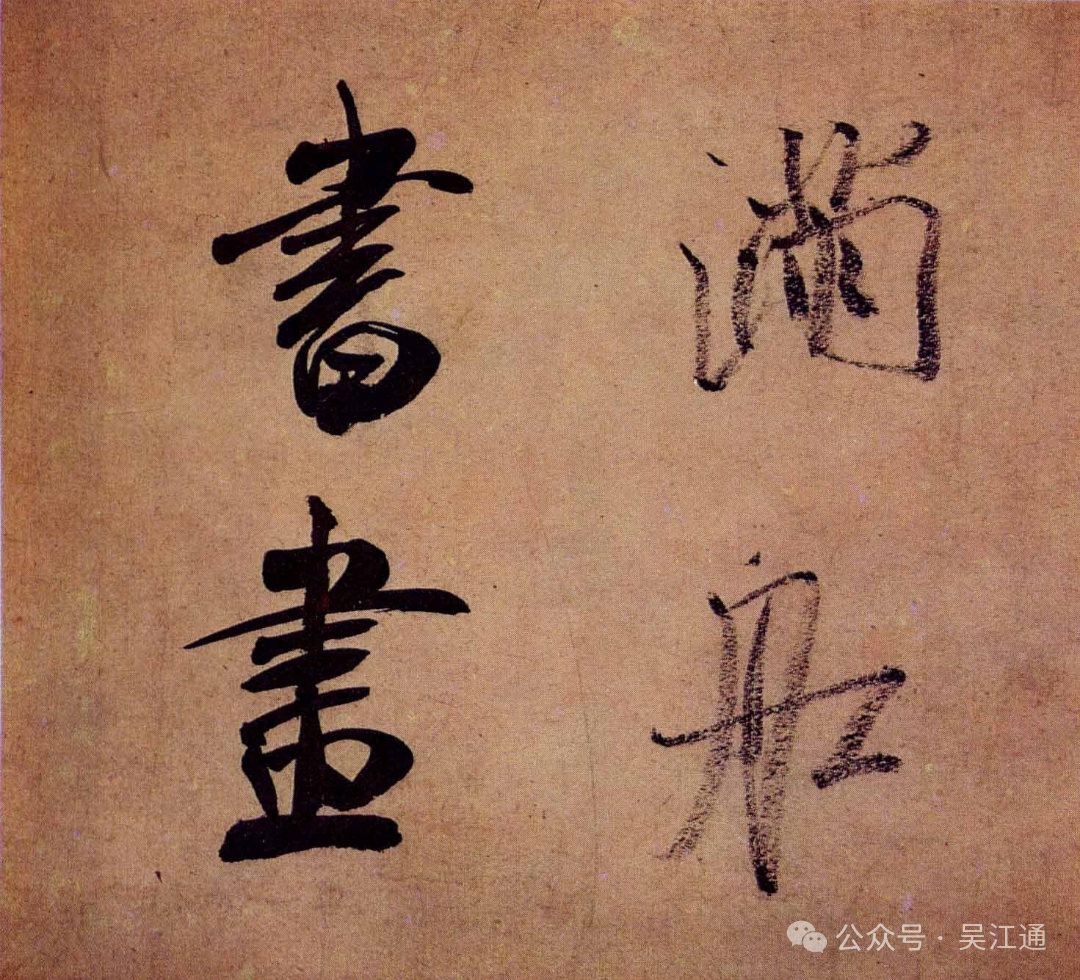 滿船
書畫
公众号·吴江通